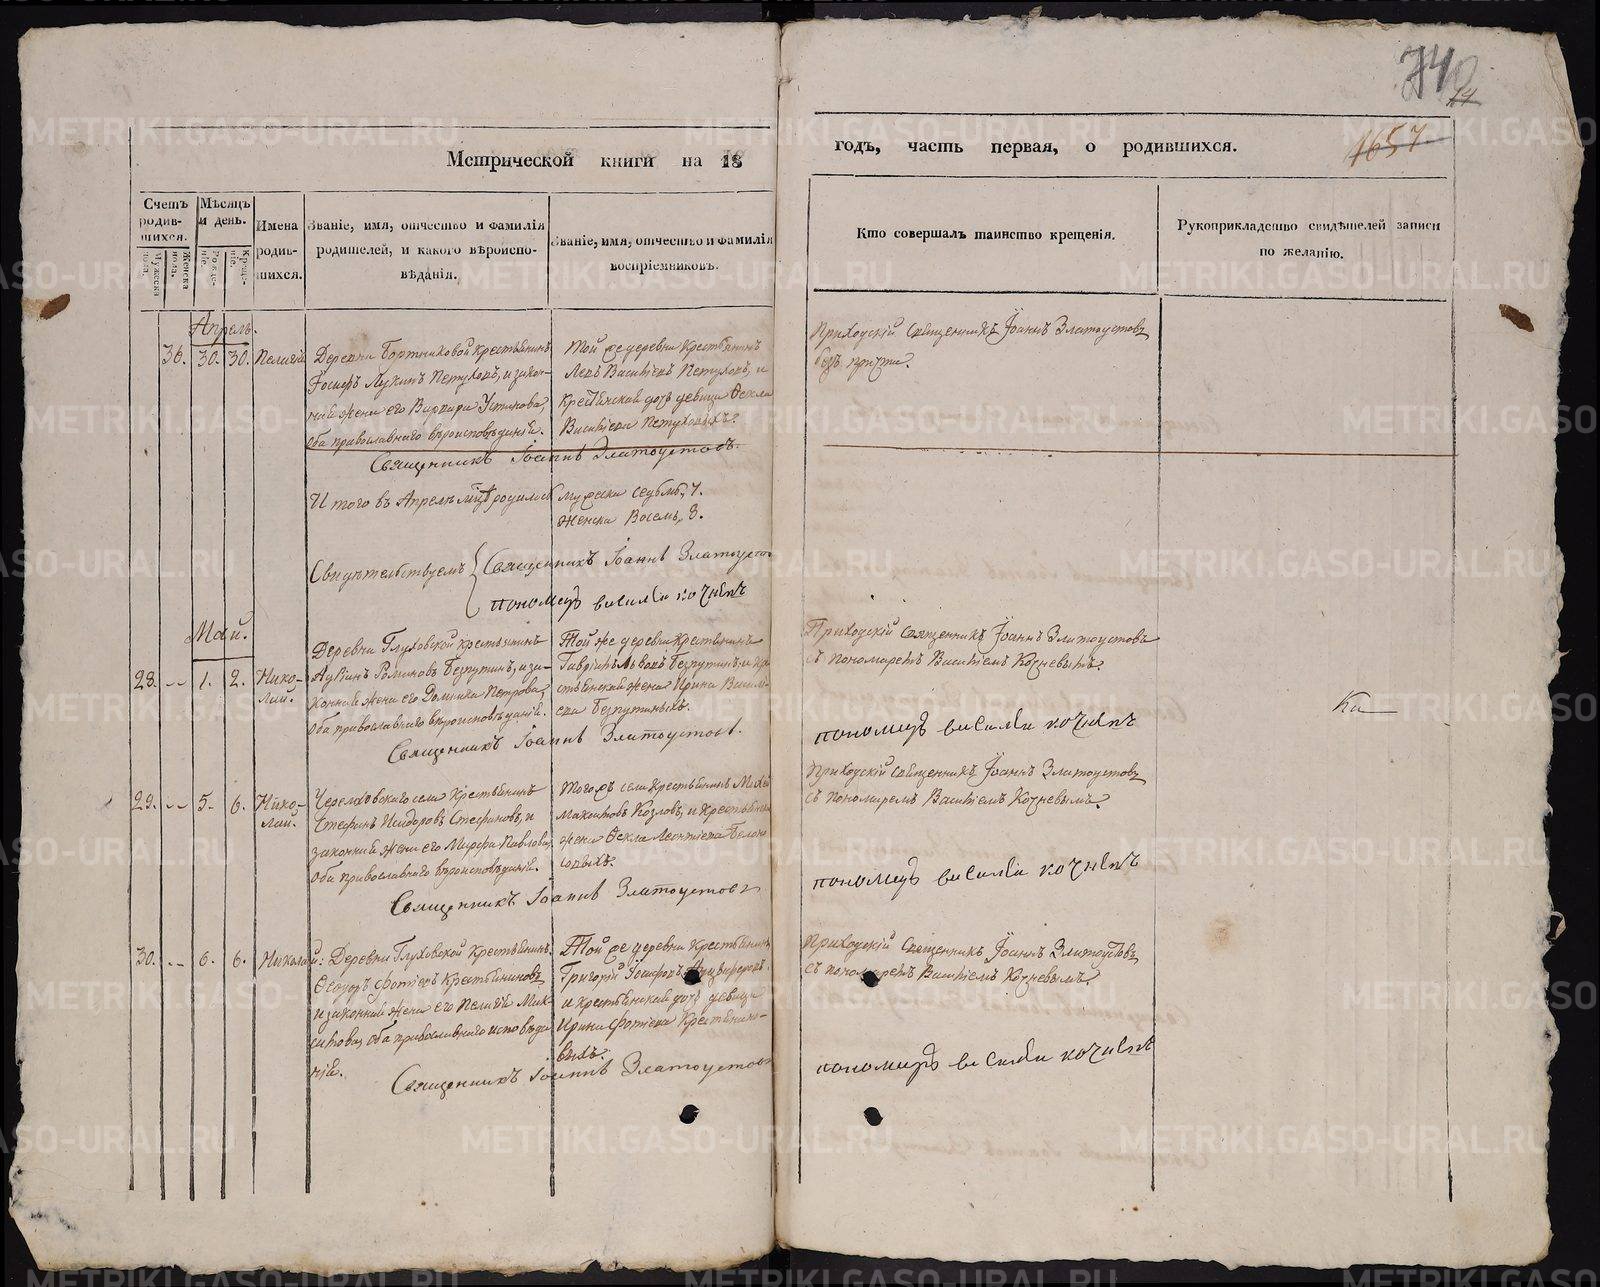 740
14
1657.
Метрической книги на 18
годъ, часть первая, о родившихся.
Счетъ родившихся.
Мужеска пола.
Женска пола.
Мѣсяцъ и день.
Рожденіе.
Крещеніе.
Имена родившихся.
Званіе, имя, отчество и фамилія родителей, и какого вѣроисповѣданія.
Званіе, имя, отчество и фамилія воспріемниковъ.
Кто совершалъ таинство крещенія.
Рукоприкладство свидѣтелей записи по желанію.
Апрель.
36. 30. 30. Пелагія
Деревни Бортниковой крестьянинъ
Іосифъ Лукинъ Петуховъ, и закон-
ная жена его Варвара Устинова,
оба православнаго вѣроисповѣданія.
Той же деревни крестьянинъ
Левъ Васильевъ Петуховъ, и
крестьянская дочь девица Ѳекла
Васильева Петуховыхъ.
Приходскій священникъ Іоаннъ Златоустовъ
безъ причта.
Священникъ Іоаннъ Златоустовъ.
И того въ Апрелѣ мцѣ родилось
мужеска седьмь, 7.
женска Восемь, 8.
Свидѣтельствуемъ
Священникъ Іоаннъ Златоустов
пономарь василий кочневъ
Май.
28. -- 1. 2. Нико-
лай.
Деревни Глуховской крестьянинъ
Романовъ Безпутинъ, и за-
конная жена его Домника Петрова,
оба православнаго вѣроисповѣданія.
Той же деревни крестьянинъ
Гавріилъ Львовъ Безпутинъ, и кре
стьянская жена Ирина Василь-
ева Безпутиныхъ.
Приходскій священникъ Іоаннъ Златоустовъ
съ пономаремъ Василіемъ Кочневымъ.
Священникъ Іоаннъ Златоустовъ.
пономарь василий кочневъ
29. -- 5. 6. Нико-
лай.
Черемховскаго села крестьянинъ
Стефанъ Исидоровъ Стефановъ, и
законная жена его Марфа Павлова,
оба православнаго вѣроисповѣданія.
Того жъ села крестьянинъ
Козловъ, и крестьянская
жена Ѳекла Леонтіева
Приходскій священникъ Іоаннъ Златоустовъ
съ пономаремъ Василіемъ Кочневымъ.
Священникъ Іоаннъ Златоустовъ
пономарь василий кочневъ
30. -- 6. 6. Николай:
Деревни Глуховской крестьянинъ
Ѳедоръ Фотіевъ Крестьяниновъ
и законная жена его Пелагія Мак-
симова, оба православнаго исповѣда
нія.
Той же деревни крестьянинъ
Григорій Іосифовъ
и крестьянская дочь девица
Ирина Фотіева Крестьянино-
выхъ.
Приходскій священникъ Іоаннъ Златоустовъ
съ пономаремъ Василіемъ Кочневымъ.
Священникъ Іоаннъ Златоустовъ
пономарь василий кочневъ
METRIKI.GASO-URAL.RU